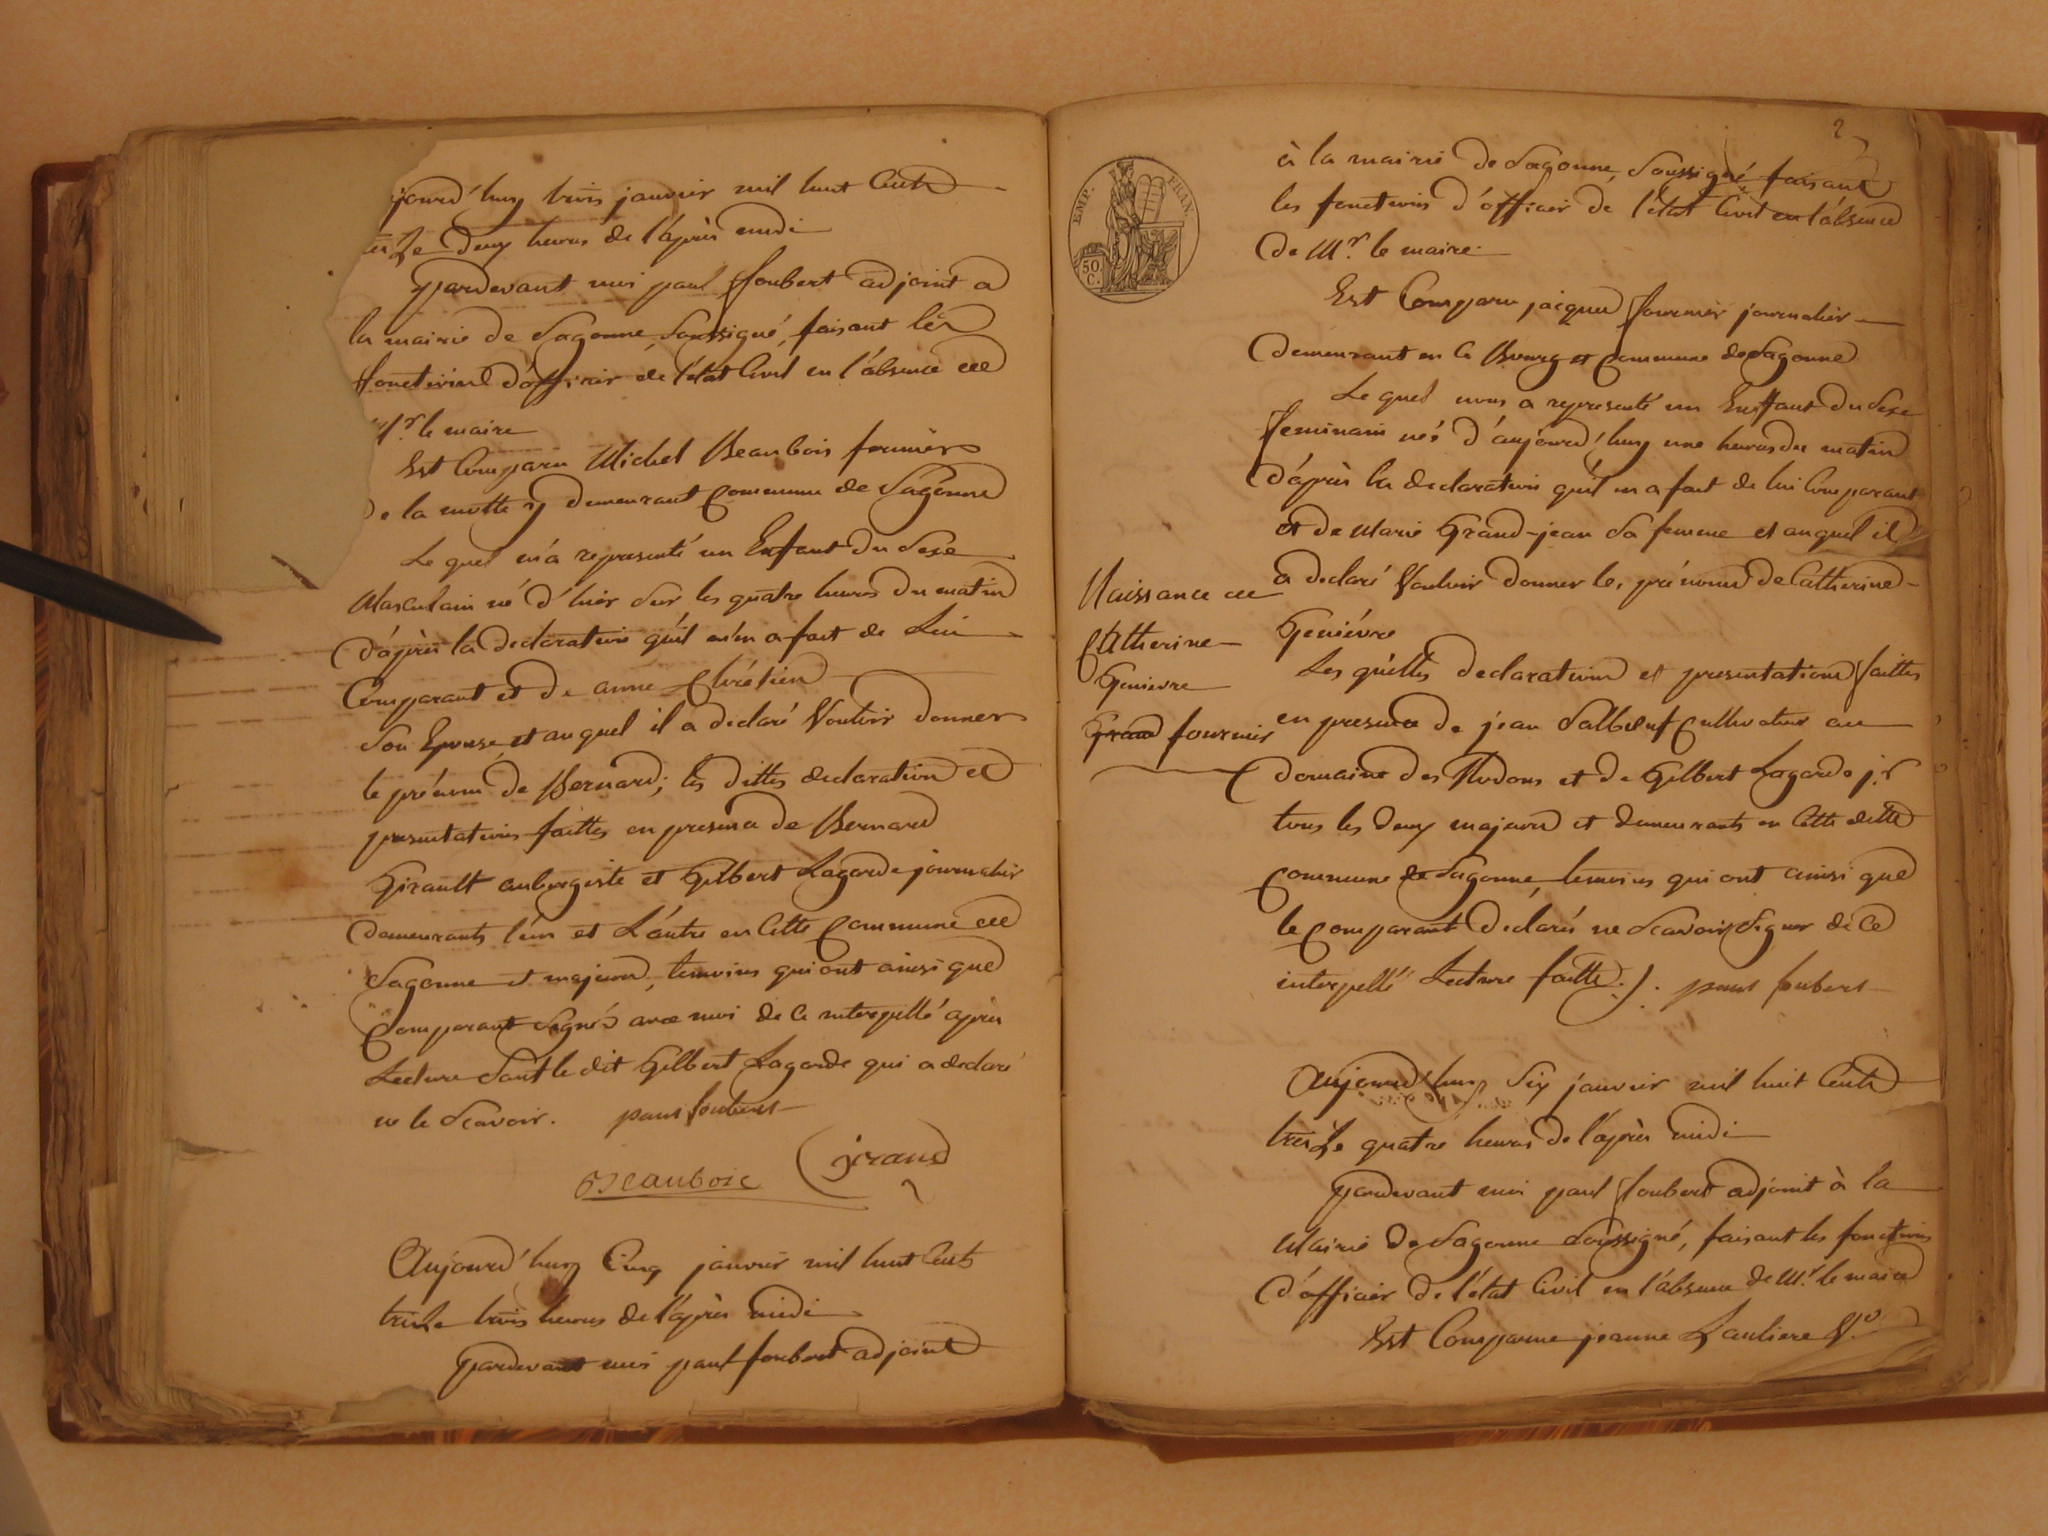 jourd'huy trois janvier mil huit Cent
treize deux heures de l'après midi
pardevant moi paul foubert adjoint a
la mairie de Sagonne, Soussigné, faisant les
fonctions d'officier de l'état Civil en l'absence de
Mr. le maire
Est Comparu Michel Beaubois fermier
De la motte y demeurant Commune de Sagonne
Le quel m'a representé un Enfant Du Sexe
Masculain né d'hier Sur les quatre heures Du matin
D'après la declaration qu'il m'en a fait de Lui
Comparant et De anne Chrétien
Son Epouse, et auquel il a declaré Vouloir Donner
le prénom De Bernard; les dittes declaration et
presentations faittes en presence De Bernard
Girault aubergiste et Gilbert Lagarde journalier
Demeurants l'un et L'autre en Cette Commune de
Sagonne et majeurs, temoins qui ont ainsi que
Comparant Signés avec moi De Ce interpellé après
Lecture Sauf le dit Gilbert Lagarde qui a declaré
ne le Scavoir. paul foubert
Beauboic
giraud
Aujourd'huy Cinq janvier mil huit Cent
treize trois heures de l'après midi
pardevant moi paul foubert adjoint
2
EMP. FRAN.
50 C.
à la mairie de Sagonne, Soussigné faisant
les fonctions d'officier de l'état Civil en l'absence
De Mr. le maire.
Est Comparu jacques fournier journalier
Demeurant en Ce Bourg et Commune de Sagonne
Le quel nous a representé un Enffant Du Sexe
feminain née d'aujourd'huy une heures du matin
D'après la declaration qu'il m'a fait de lui Comparant
et De Marie Grand-jean Sa femme et auquel il
a declaré Vouloir donner les prénoms de Catherine
Geniévre
Naissance de
Catherine
Genievre
Grand fournier
Les quelles declaration et presentations faittes
en presence De jean Salbeuf Cultivateur au
Domaine des Nodons et De Gilbert Lagarde jr.
tous les deux majeurs et demeurants en Cette ditte
Commune de Sagonne, temoins qui ont ainsi que
le Comparant Declarés ne Scavoir Signer de Ce
interpellé Lecture faitte ./. paul foubert
Aujourd'huy Six janvier mil huit Cent
treize quatre heures De l'après midi
Pardevant moi paul foubert adjoint à la
Mairie De Sagonne Soussigné, faisant les fonctions
D'officier De l'état Civil en l'absence de Mr. le maire
Est Comparue jeanne Lauliere Ve.